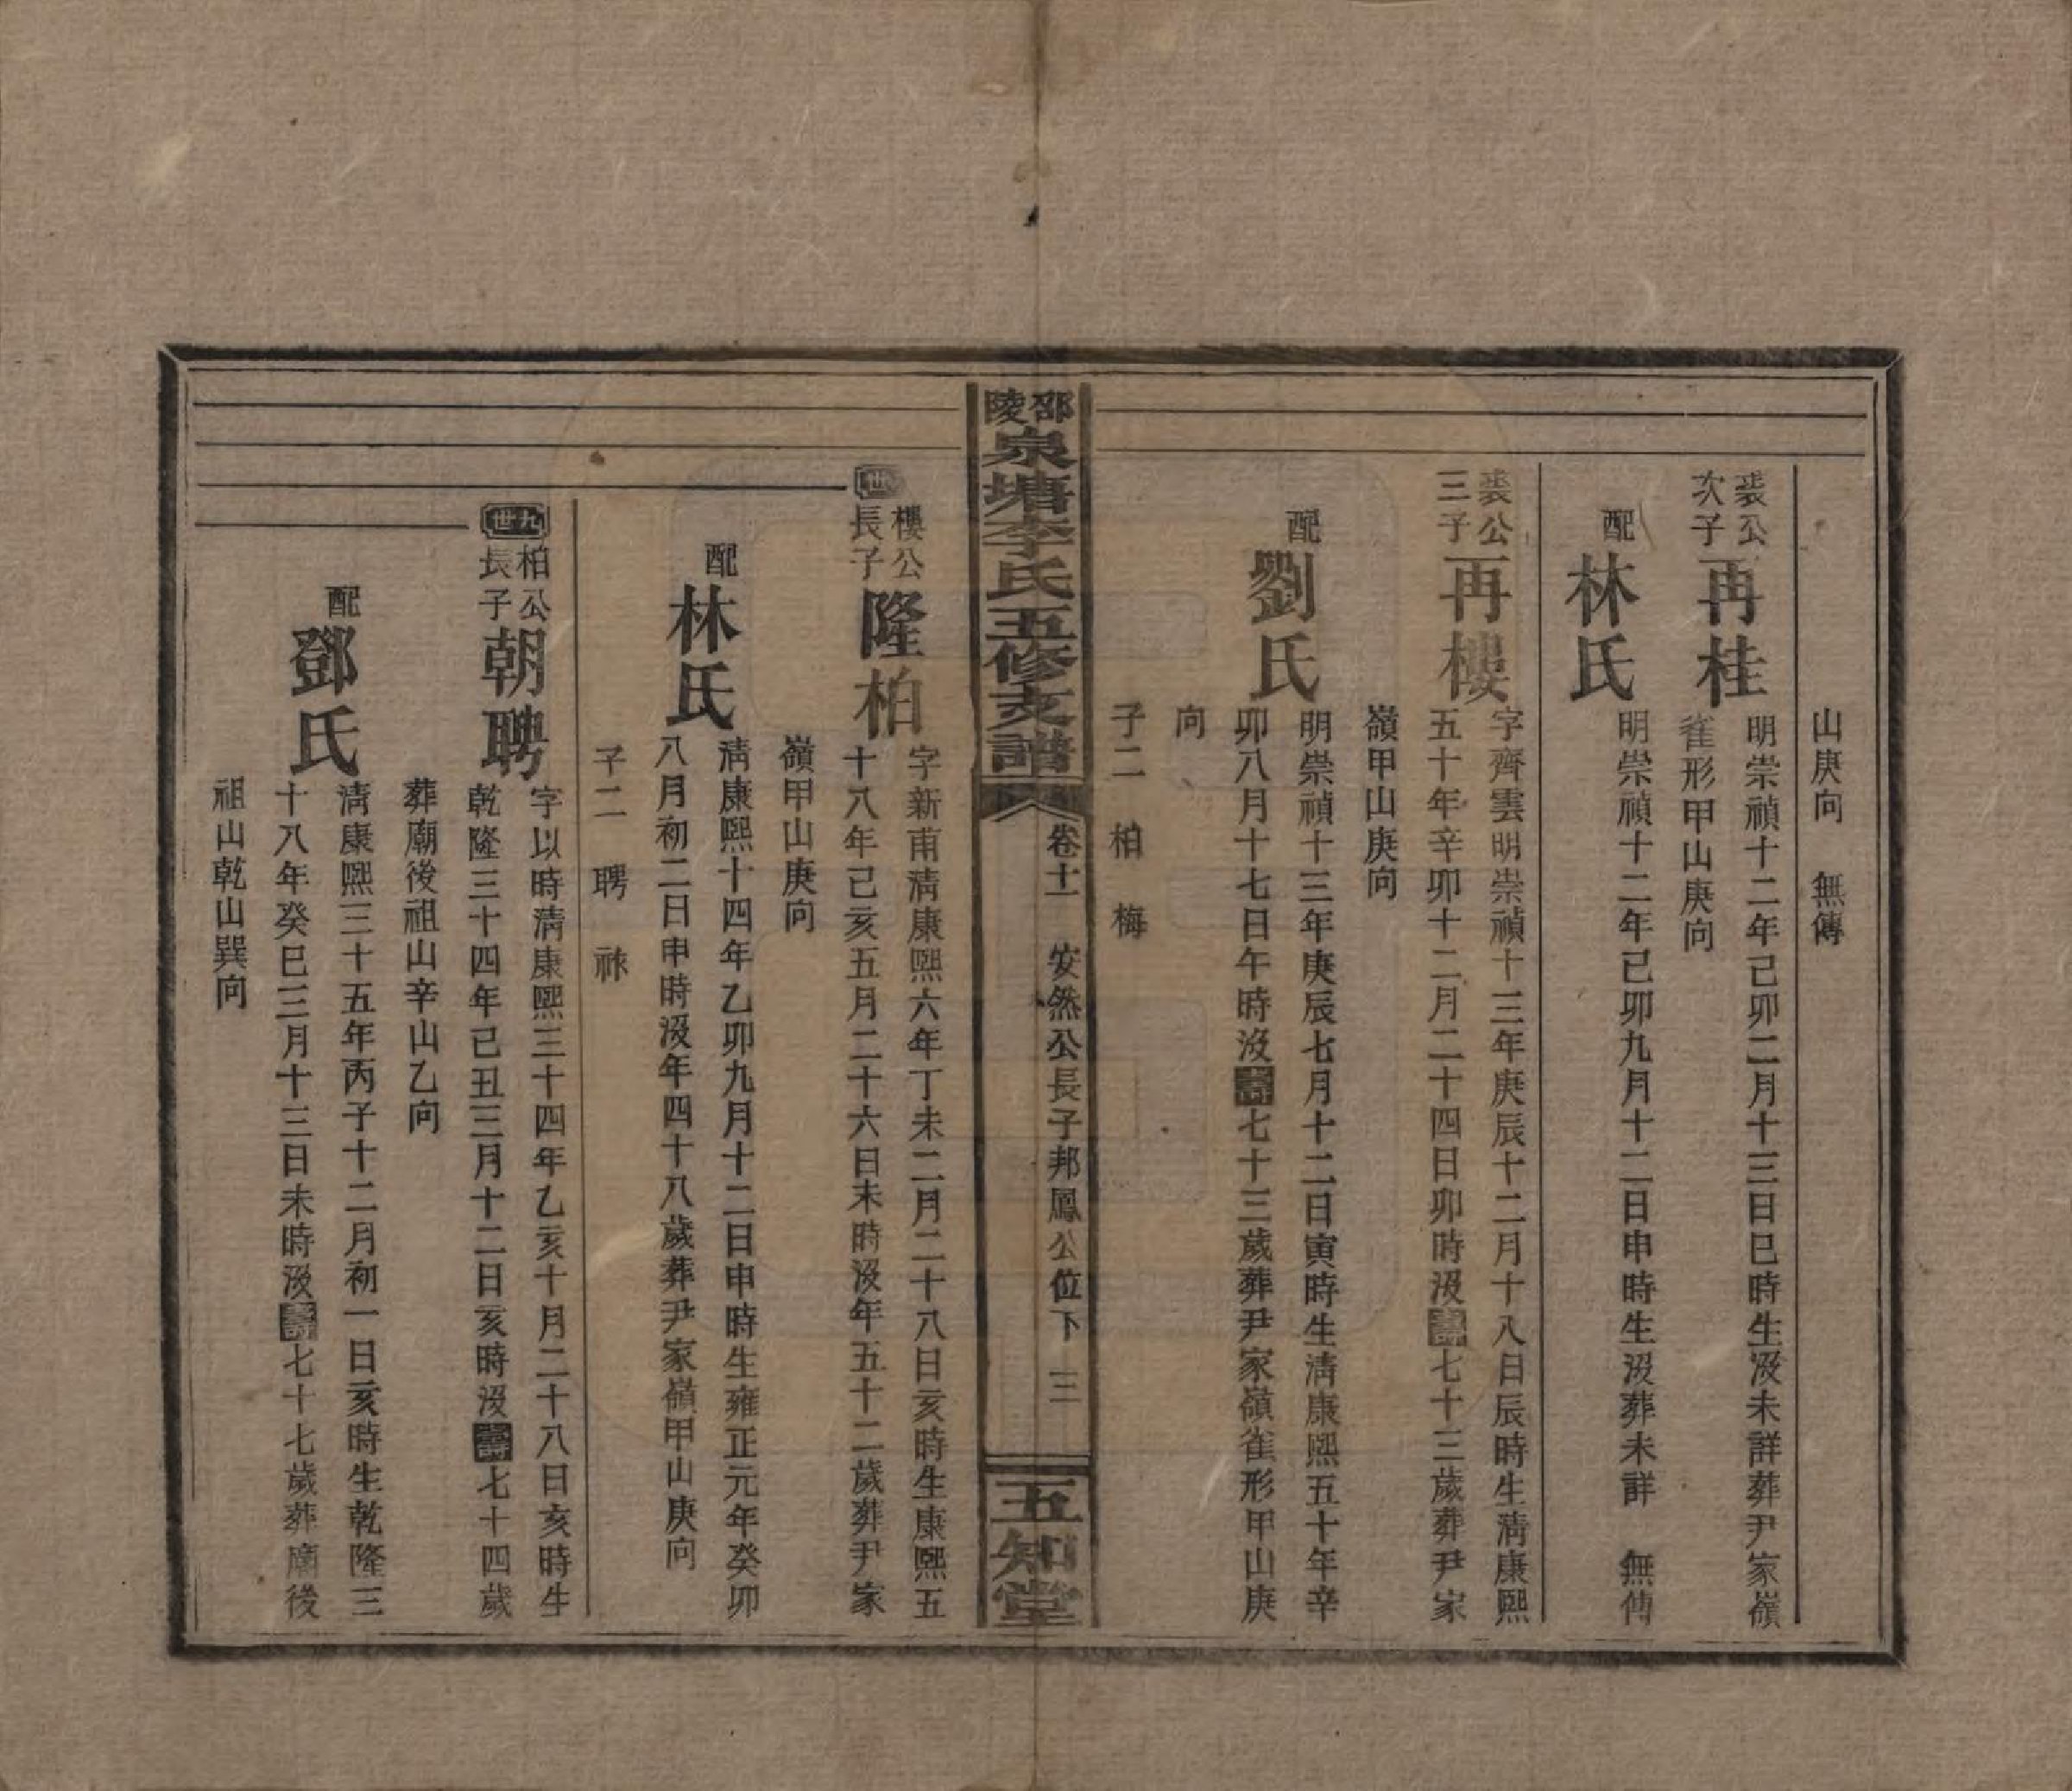 山庚向　無傳
裴公
次子
再桂
明崇禎十二年己卯二月十三日巳時生沒未詳葬尹家嶺
雀形甲山庚向
配
林氏
明崇禎十二年己卯九月十二日申時生沒葬未詳　無傳
裴公
三子
再樓
字齊雲明崇禎十三年庚辰十二月十八日辰時生淸康熙
五十年辛卯十二月二十四日卯時沒壽七十三歲葬尹家
嶺甲山庚向
配
劉氏
明崇禎十三年庚辰七月十二日寅時生淸康熙五十年辛
卯八月十七日午時沒壽七十三歲葬尹家嶺雀形甲山庚
向
子二　柏　梅
邵陵
泉塘李氏五修支譜
卷十一　安然公長子邦鳳公位下　三
五知堂
世
樓公
長子
隆柏
字新甫淸康熙六年丁未二月二十八日亥時生康熙五
十八年己亥五月二十六日未時沒年五十二歲葬尹家
嶺甲山庚向
配
林氏
淸康熙十四年乙卯九月十二日申時生雍正元年癸卯
八月初二日申時沒年四十八歲葬尹家嶺甲山庚向
子二　聘　祿
九世
柏公
長子
朝聘
字以時淸康熙三十四年乙亥十月二十八日亥時生
乾隆三十四年己丑三月十二日亥時沒壽七十四歲
葬廟後祖山辛山乙向
配
鄧氏
淸康熙三十五年丙子十二月初一日亥時生乾隆三
十八年癸巳三月十三日未時沒壽七十七歲葬廟後
祖山乾山巽向